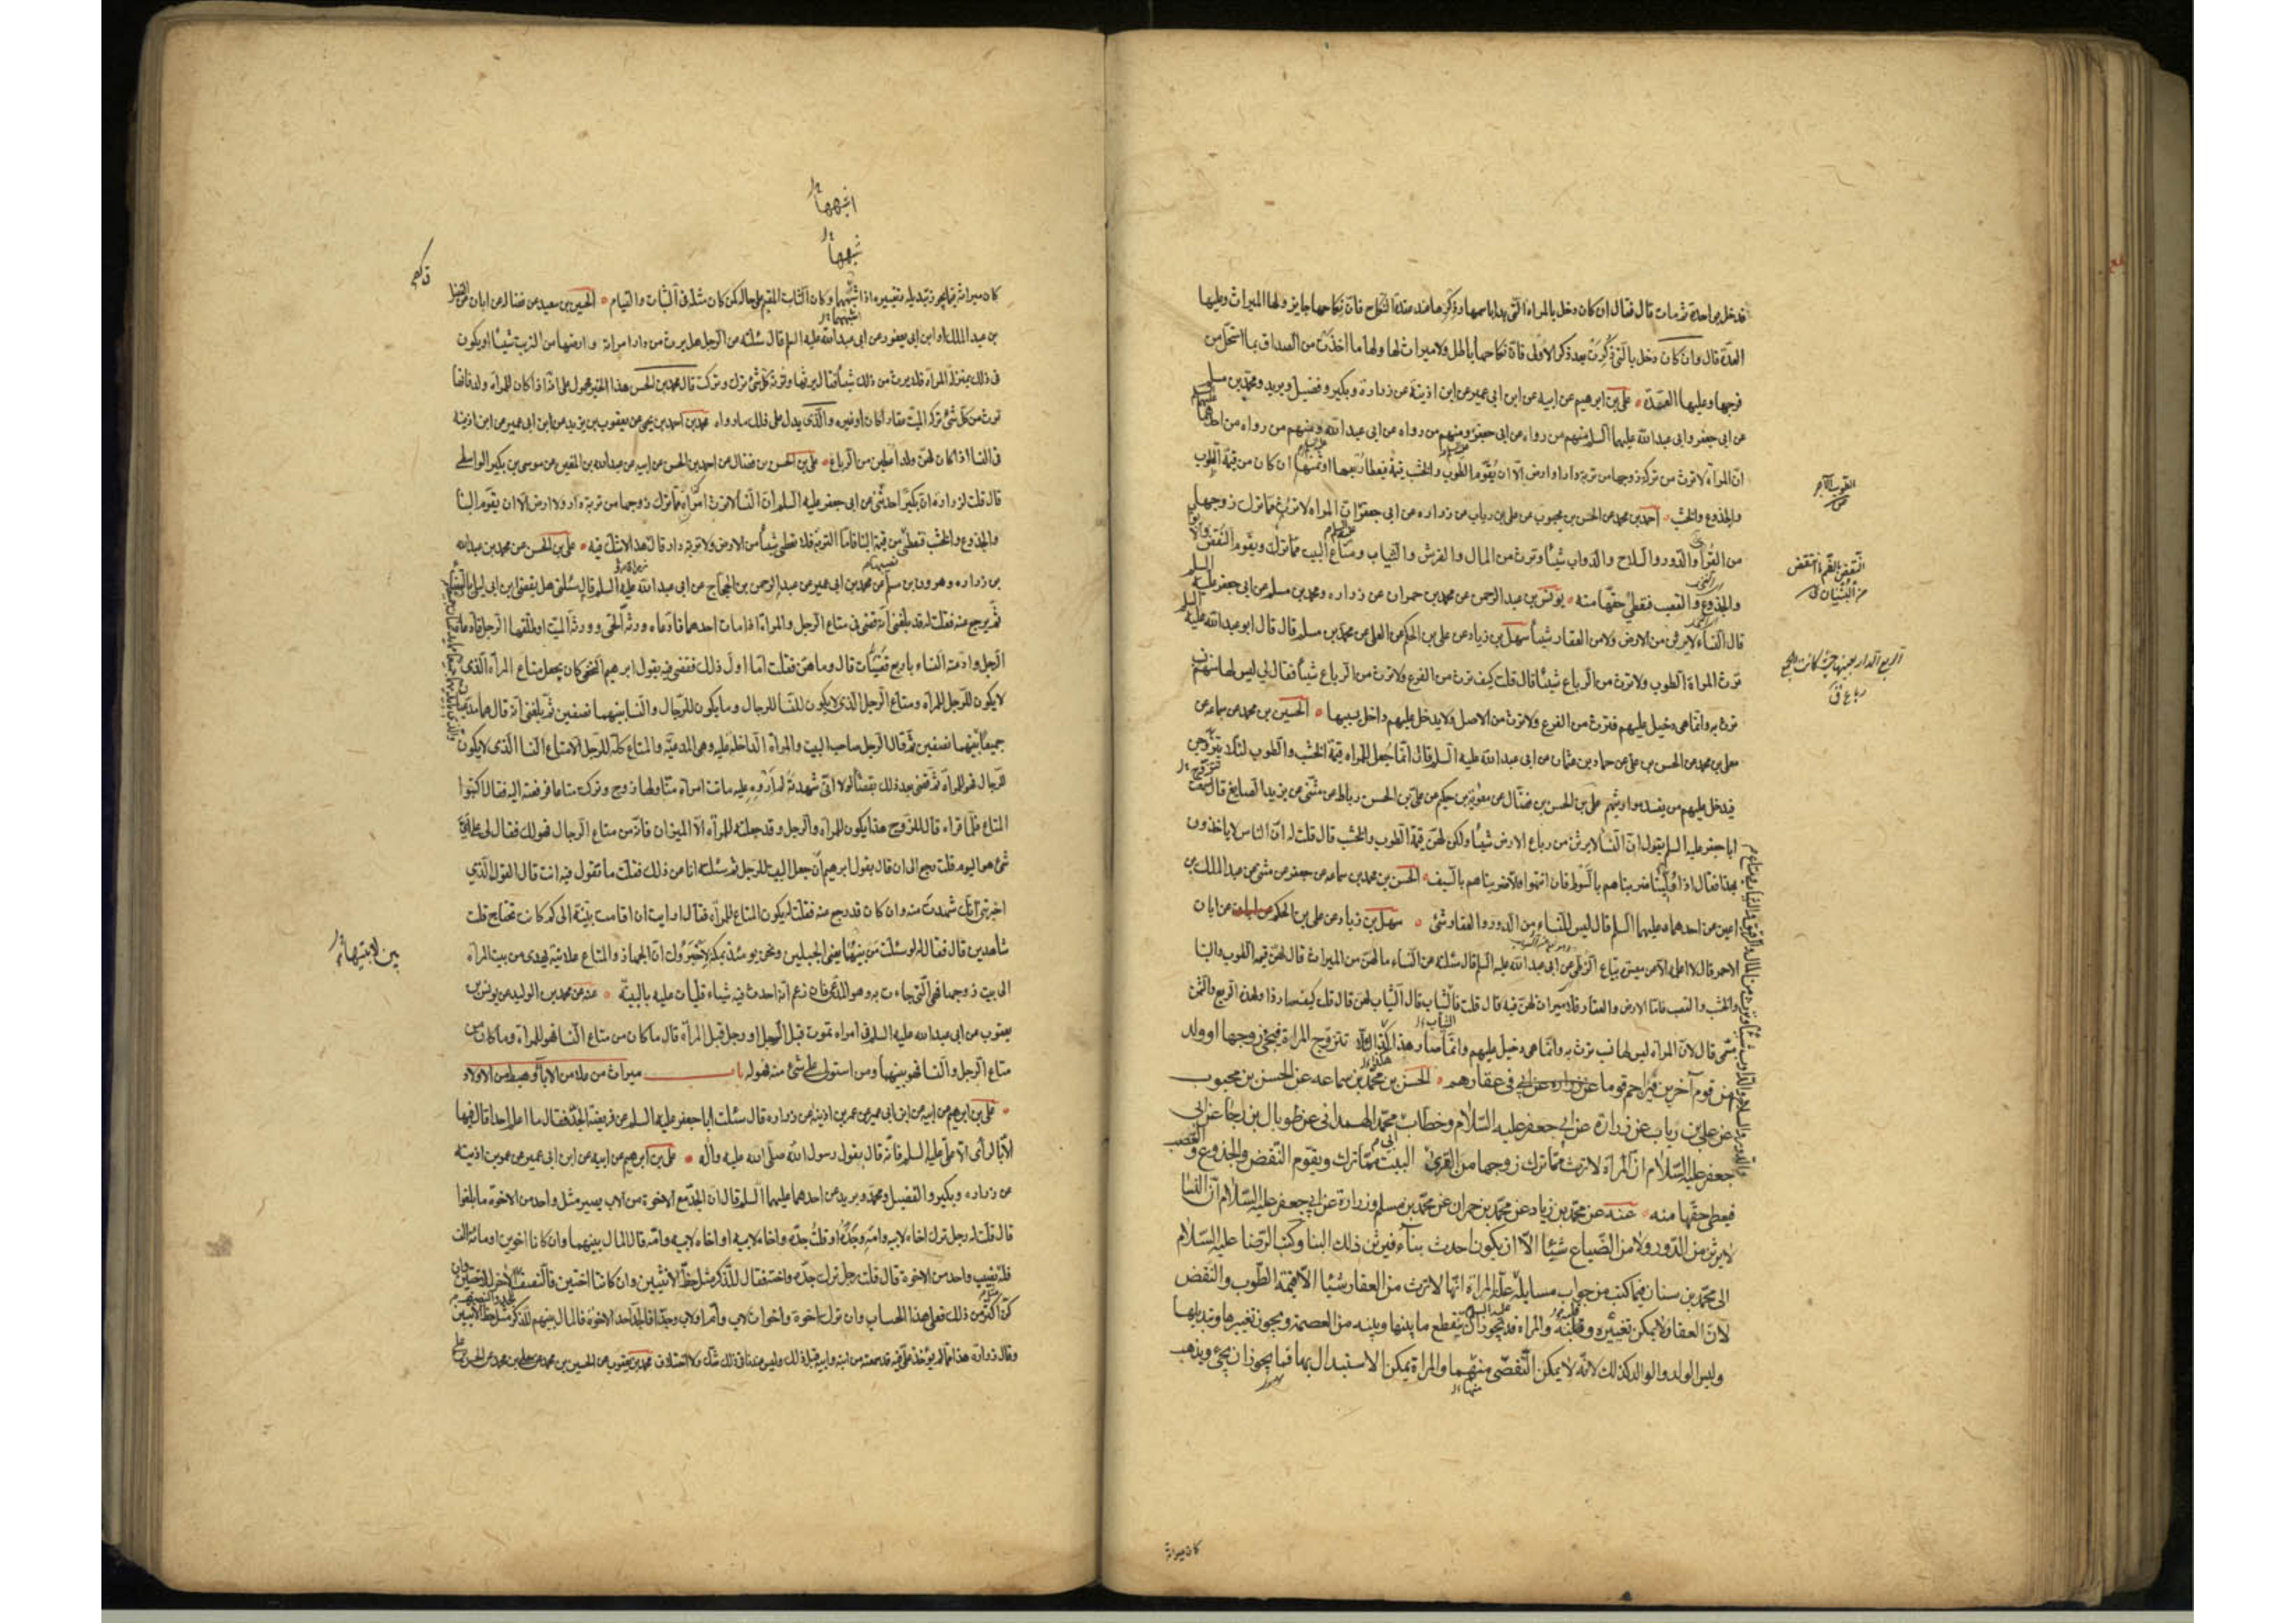 قد دخل بواحدة ثم مات قال فقال ان كان دخل بالمراة التى بدا باسمها وذكرها عند عقدة النكاح فان نكاحها جايز ولها الميراث وعليها
العدّة قال وان كان دخل بالتى ذكرت بعد ذكر الاولى فان نكاحها باطل ولا ميراث لها ولها ما اخذت من الصداق بما استحل من
فرجها وعليها العدّة علي بن ابرهيم عن ابيه عن ابن ابى عمير عن ابن اذينة عن زرارة وبكير وفضيل وبريد ومحمد بن مسلم
عن ابى جعفر وابى عبد الله عليهما السلم منهم من رواه عن ابى جعفر ومنهم من رواه عن ابى عبد الله ومنهم من رواه عن احدهما
عليهم
انّ المراة لا ترث من تركة زوجها من تربة دار او ارض الّا ان يقوّم الطوب والخشب قيمة فيعطا ربعها او ثمنها ان كان من قيمة الطوب
والجذوع والخشب احمد بن محمد عن الحسن بن محبوب عن على بن رياب عن زراره عن ابى جعفر انّ المراه لا ترث مما ترك زوجها
من القرى والدور والسلاح والدواب شيئا وترث من المال والفرش والثياب ومتاع البيت مما ترك ويقوم النقض والابواب
والجذوع والقصب فتعطى حقها منه يونس بن عبد الرحمن عن محمد بن حمران عن زراره ومحمد بن مسلم عن ابى جعفر عليه السلم
قال النساء لا يرثن من الارض ولا من العقار شيئا سهل بن زياد عن على بن الحكم عن العلى عن محمد بن مسلم قال قال ابو عبد الله عليه السلم
ترث المراة الطوب ولا ترث من الرباع شيئا قال قلت كيف ترث من الفرع ولا ترث من الرباع شيئا فقال لي ليس لها منهم نسب
ترث به وانما هى دخيل عليهم فترث من الفرع ولا ترث من الاصل ولا يدخل عليهم داخل بسببها الحسين بن محمد عن سماعه عن
معلى بن محمد عن الحسن بن على عن حماد بن عثمان عن ابى عبد الله عليه السلم قال انما جعل للمراه قيمة الخشب والطوب لئلا يتزوجن
فيدخل عليهم من يفسد مواريثهم على بن الحسن بن فضال عن معوية بن حكيم عن على بن الحسن بن رباط عن مثنى عن يزيد الصايغ قال سمعت
ابا جعفر عليه السلم يقول ان النسا لا يرثن من رباع الارض شيئا ولكن لهن قيمة الطوب والخشب قال قلت له ان الناس لا ياخذون
بهذا فقال اذا ولينا ضربناهم بالسوط فان انتهوا والا ضربناهم بالسيف الحسن بن محمد بن سماعه عن جعفر عن مثنى عن عبد الملك بن
اعين عن احدهما عليهما السلم قال ليس للنساء من الدور والعقار شئ سهل بن زياد عن على بن الحكم عن ابان
الاحمر قال لا اعلمه الا عن ميسر بياع الزطى عن ابى عبد الله عليه السلم قال سئلته عن النساء ما لهن من الميراث قال لهن قيمة الطوب والبنا
والخشب والقصب فاما الارض والعقار فلا ميراث لهن فيه قال قلت فالثياب قال الثياب لهن قال قلت كيف صار ذا ولهذه الربع والثمن
مسمى قال لان المراه ليس لها نسب ترث به وانما هى دخيل عليهم وانما صار هذا كذا لئلا تتزوج المراة فيجئ زوجها او ولد
من قوم آخرين فيزاحم قوما فى عقارهم الحسن بن محمد بن سماعه عن الحسن بن محبوب
عن على بن رياب عن زرارة عن ابى جعفر عليه السلام وخطاب ابى محمد الهمدانى عن طربال بن رجا عن ابى
جعفر عليه السلام ان المراة لا ترث مما ترك زوجها من القرى البيت مما ترك ويقوم النقض والجذوع والقصب
فيعطى حقها منه عنه عن محمد بن زياد عن محمد بن حمران عن محمد بن مسلم وزرارة عن ابى جعفر عليه السلام ان النسا
لا يرثن من الدور ولا من الضياع شيئا الا ان يكون احدث بناء فيرثن ذلك البنا وكتب الرضا عليه السلام
الى محمد بن سنان فيما كتب من جواب مسايله علة المراة انها لا ترث من العقار شيئا الا قيمة الطوب والنقض
لان العقار لا يمكن تغييره وقلبه والمراه قد يجوز ان ينقطع ما بينها وبينه من العصمة ويجوز تغييرها وتبديلها
وليس الولد والوالد كذلك لانه لا يمكن التفصى منهما والمراة يمكن الاستبدال بها فما يجوز ان يجئ ويذهب
الطوب الآجر
النقض بالضم ما انتقض من البنيان
الربع الدار بعينها حيث كانت الجمع رباع ق
كان ميراثه
كان ميراثه فيما يجوز تبديله وتغييره اذا اشبهها وكان الثابت المقيم على حاله كمن كان مثله فى الثبات والقيام الحسين بن سعيد عن فضاله عن ابان عن الفضل
بن عبد الملك او ابن ابى يعفور عن ابى عبد الله عليه السلم قال سئلته عن الرجل هل يرث من دار امراته وارضها من التربة شيئا او يكون
فى ذلك بمنزلة المراة فلا يرث من ذلك شيئا فقال يرثها وترث كل شئ ترك وتركت قال محمد بن الحسن هذا الخبر محمول على انه اذا كان للمراة ولد فانها
ترث من كل شئ تركه الميت عقارا كان او غيره والذى يدل على ذلك ما رواه محمد بن احمد بن يحيى عن يعقوب بن يزيد عن ابن ابى عمير عن ابن اذينة
فى النسا اذا كان لهن ولد اعطين من الرباع على بن الحسن بن فضال عن احمد بن الحسن عن ابيه عن عبد الله بن المغيره عن موسى بن بكير الواسطى
قال قلت لزراره ان بكيرا حدثنى عن ابى جعفر عليه السلم ان النسا لا ترث امراة مما ترك زوجها من تربة دار ولا ارض الا ان يقوم البنا
والجذوع والخشب فتعطى من قيمة البنا فاما التربة فلا تعطى شيئا من الارض ولا تربة دار قال هذا لا شك فيه على بن الحسن عن محمد بن عبد الله
بن زراره وهرون بن مسلم عن محمد بن ابى عمير عن عبد الرحمن بن الحجاج عن ابى عبد الله عليه السلم قال سئلنى هل يقضى ابن ابى ليلى بالقضاء
ثم يرجع عنه فقلت له قد بلغنى انه قضى فى متاع الرجل والمراة اذا مات احدهما فادعاه ورثة الحى وورثة الميت او طلقها الرجل فادعاه
الرجل وادعته النساء باربع قضيات قال وما هن فقلت اما اول ذلك فقضى فيه بقول ابرهيم النخعى كان يجعل متاع المراة الذى
لا يكون للرجل للمراة ومتاع الرجل الذى لا يكون للنسا للرجال وما يكون للرجال والنسا بينهما نصفين ثم بلغنى انه قال هما مدعيان
جميعا بينهما نصفين ثم قال الرجل صاحب البيت والمراة الداخله عليه وهى المدعية والمتاع كله للرجل الا متاع النسا الذى لا يكون
للرجال فهو للمراة ثم قضى بعد ذلك بقضاء لولا انى شهدته لم اروه عليه ماتت امراة منا ولها زوج وترك متاعا فرفعته اليه فقال اكتبوا
المتاع فلما قراه قال للزوج هذا يكون للمراة والرجل وقد جعلته للمراة الا الميزان فانه من متاع الرجال فهو لك فقال لى على اى
شئ هو اليوم قلت رجع الى ان قال بقول ابرهيم ان جعل البيت للرجل ثم سئلته انا عن ذلك فقلت ما تقول فيه انت قال القول الذى
اخبرتنى انك شهدت منه وان كان قد رجع عنه فقلت له يكون المتاع للمراة فقال ارايت ان اقامت بينة الى كم كانت تحتاج قلت
شاهدين قال فقال لو سئلت من بينهما يعنى الجبلين ونحن يومئذ بمكة لاخبروك ان الجهاز والمتاع علانية يهدى من بيت المراة
الى بيت زوجها فهى التى جاءت به وهو المدعى فان زعم انه احدث فيه شياء فليات عليه بالبينة عنه عن محمد بن الوليد عن يونس بن
يعقوب عن ابى عبد الله عليه السلم فى امراه تموت قبل الرجل او رجل قبل المراة قال ما كان من متاع النسا فهو للمراة وما كان من
متاع الرجل والنسا فهو بينهما ومن استولى على شئ منه فهو له باب ميراث من علا من الاباء وهبط من الاولاد
على بن ابرهيم عن ابيه عن ابن ابى عمير عن عمر بن اذينة عن زراره قال سئلت ابا جعفر عليه السلم عن فريضة الجد فقال ما اعلم احدا قال فيها
الا بالراى الا على عليه السلم فانه قال بقول رسول الله صلى الله عليه واله على بن ابرهيم عن ابيه عن ابن ابى عمير عن عمر بن اذينة
عن زراره وبكير والفضيل ومحمد وبريد عن احدهما عليهما السلم قال ان الجد مع الاخوة من الاب يصير مثل واحد من الاخوة ما بلغوا
قال قلت له رجل ترك اخاه لابيه وامه وجده او قلت جده واخاه لابيه او اخاه لابيه وامه قال المال بينهما وان كانا اخوين او مائة الف
فله نصيب واحد من الاخوة قال قلت رجل ترك جده واخته فقال للذكر مثل حظ الانثيين وان كانتا اختين فالنصف للجد والنصف الاخر للاختين وان
كن اكثر من ذلك فعلى هذا الحساب وان ترك اخوة واخوات لاب وام او لاب وجدا فالجد احد الاخوة فالمال بينهم للذكر مثل حظ الانثيين
وقال زراره هذا مما لم يؤخذ على فيه قد سمعته من ابنه وابيه قبل ذلك وليس عندنا فى ذلك شك ولا اختلاف محمد بن يعقوب عن الحسين بن محمد عن معلى بن محمد عن الحسن بن على
بين لابتيها